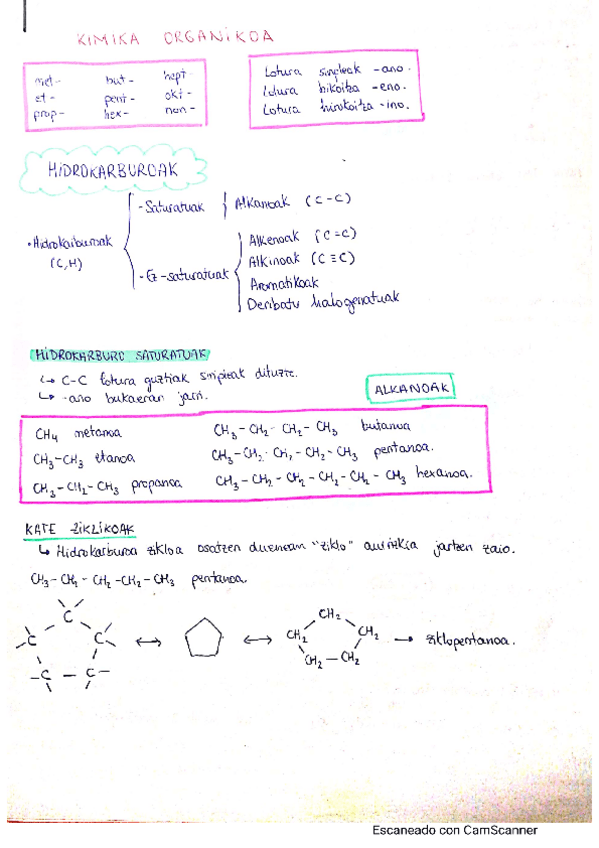 KIMIKA ORGANIKOA
met- but- hept-
et- pent- okt-
prop- hex- non-
Lotura sinpleak -ano.
Lotura bikoitza -eno.
Lotura hirukoitza -ino.
HIDROKARBUROAK
• Hidrokarburoak
(C,H)
- Saturatuak
Alkanoak (C-C)
- Ez-saturatuak
Alkenoak (C=C)
Alkinoak (C≡C)
Aromatikoak
Deribatu halogenatuak
HIDROKARBURO SATURATUAK
↳ C-C lotura guztiak sinpleak dituzte.
↳ -ano bukaeran jarri.
ALKANOAK
CH₄ metanoa
CH₃-CH₃ etanoa
CH₃-CH₂-CH₃ propanoa
CH₃-CH₂-CH₂-CH₃ butanoa
CH₃-CH₂-CH₂-CH₂-CH₃ pentanoa.
CH₃-CH₂-CH₂-CH₂-CH₂-CH₃ hexanoa.
KATE ZIKLIKOAK
↳ Hidrokarburoa zikloa osatzen duenean "ziklo" aurrizkia jartzen zaio.
CH₃-CH₂-CH₂-CH₂-CH₃ pentanoa.
C
C C
C - C
↔ ↔
CH₂
CH₂ CH₂
CH₂-CH₂
→ ziklopentanoa.
Escaneado con CamScanner